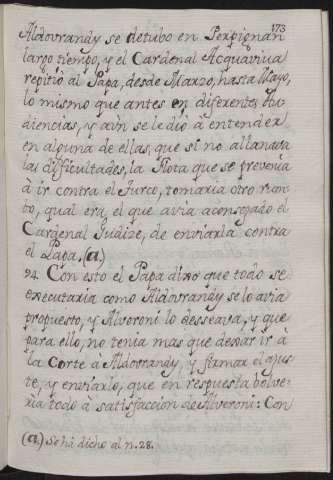 173
Aldovrandy se detubo en Perpignan
largo tiempo, y el Cardenal Acquaviva
repitió al Papa, desde Marzo, hasta Mayo,
lo mismo que antes en diferentes Au-
diencias, y aún se le dió à entender
en alguna de ellas, que si no allanava
las difficultades, la Flota que se prevenia
à ir contra el Turco, tomaria otro rum-
bo, qual era, el que avia aconsejado el
Cardenal Judize, de enviarla contra
el Papa. (a.)
94. Con esto el Papa dixo que todo se
executaria como Aldovrandy se lo avia
propuesto, y Alveroni lo desseava, y que
para ello, no tenia mas que dexar ir à
la Corte à Aldovrandy, y firmar el ajus-
te, y enviarlo, que en respuesta bolve-
ria todo à satisfaccion de Alveroni: Con
(a.) Se há dicho al n. 28.